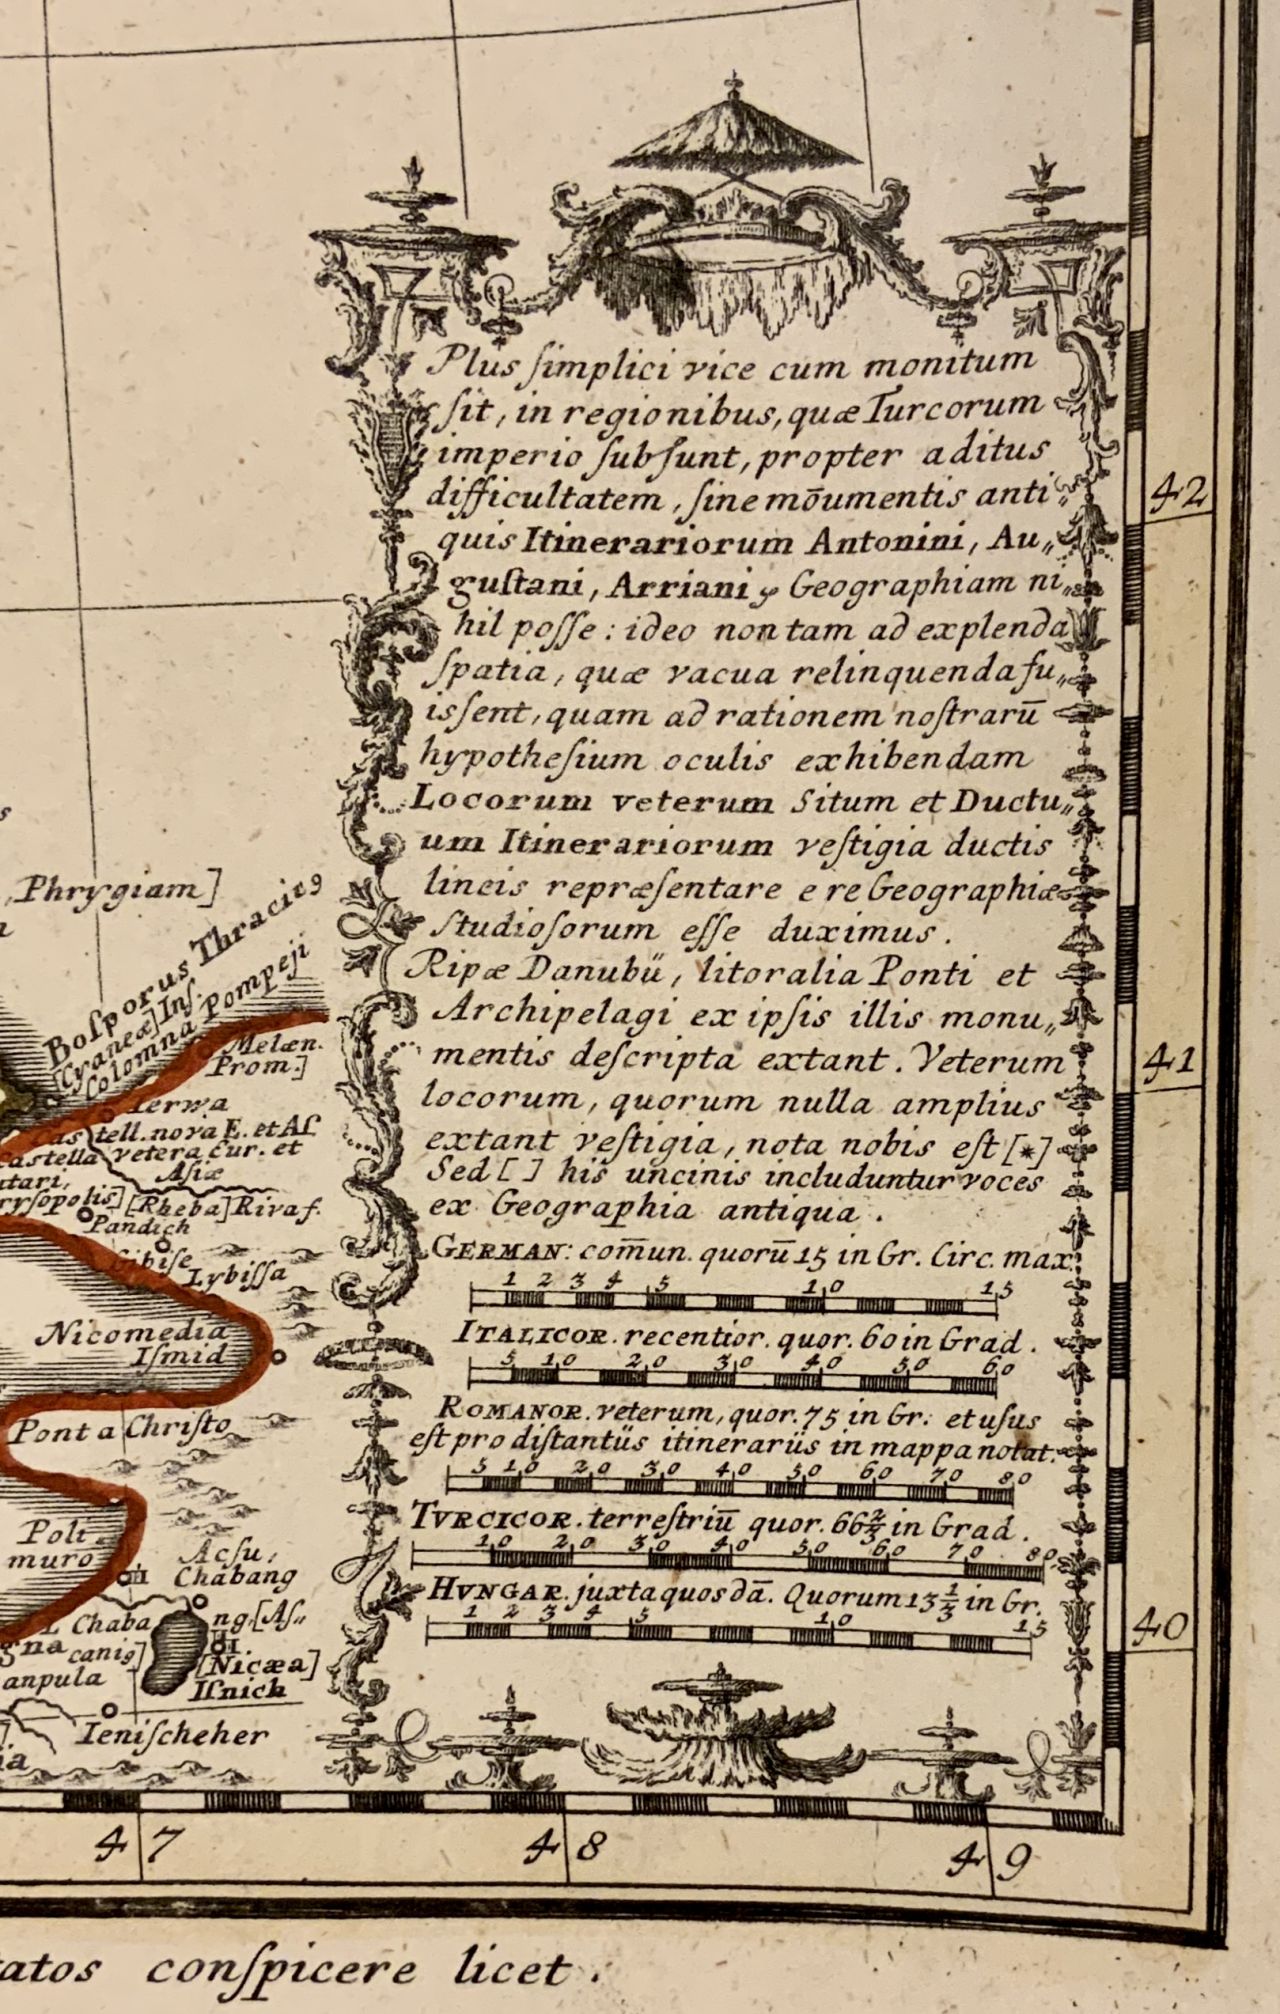 Plus ſimplici vice cum monitum
ſit, in regionibus, quæ Turcorum
imperio ſubſunt, propter aditus
difficultatem, ſine mōumentis anti„
quis Itinerariorum Antonini, Au„
guſtani, Arriani, Geographiam ni„
hil poſſe: ideo non tam ad explenda
ſpatia, quæ vacua relinquenda fu„
isſent, quam ad rationem noſtrarū
hypotheſium oculis exhibendam
Locorum veterum Situm et Ductu„
um Itinerariorum veſtigia ductis
lineis repræſentare e re Geographiæ
Studioſorum eſſe duximus.
Ripæ Danubii, litoralia Ponti et
Archipelagi ex ipſis illis monu„
mentis deſcripta extant. Veterum
locorum, quorum nulla amplius
extant veſtigia, nota nobis eſt [*]
Sed [ ] hiis uncinis includuntur voces
ex Geographia antiqua.
GERMAN: com̄un. quorū 15 in Gr. Circ. max.
1 2 3 4 5 10 15
ITALICOR. recentior. quor. 60 in Grad.
5 10 20 30 40 50 60
ROMANOR. veterum, quor. 75 in Gr: et uſus
eſt pro diſtantiis itinerariis in mappa notat.
5 10 20 30 40 50 60 70 80
TVRCICOR. terreſtriū quor. 66 2/3 in Grad.
10 20 30 40 50 60 70 80
HVNGAR. juxta quosdā. Quorum 13 1/3 in Gr.
1 2 3 4 5 10 15
42
41
40
, Phrygiam]
Boſporus Thracius
[Cyaneæ] Inſ.
Colomna Pompeji
Melæn.
Prom.]
Castell. nova E. et Aſ.
Castella vetera Eur. et
Aſiæ
[Rheba] Riva f.
Pandich
Gibiſe
Lybiſſa
Nicomedia
Iſmid
Ponta Chriſto
Poli
muro
Acſu,
Chabang
Chaba
ng. [Aſ„
canig]
[Nicæa]
Iſnich
anpula
Ieniſcheher
47 48 49
tatos conſpicere licet.